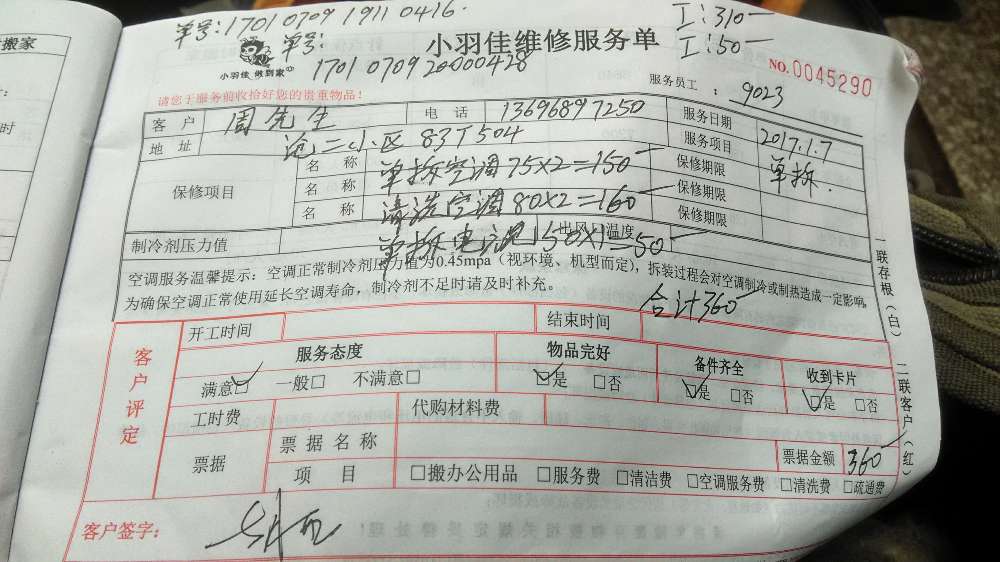 单号:1701070919110416.
工:310一
工:50一
搬家
单号:
17010709200000428
小羽佳 做到家
小羽佳维修服务单
NO.0045290
请您于服务前收拾好您的贵重物品！
服务员工 : 9023
客户 周先生 电话 13696897250 服务日期 2017.1.7
地址 沧二小区83丁504 服务项目 单拆.
保修项目 名称 单拆空调75X2=150 保修期限
名称 清洗空调80X2=160 保修期限
名称 保修期限
制冷剂压力值 单拆 50X1=50 出风口温度
空调服务温馨提示：空调正常制冷剂压力值为0.45mpa（视环境、机型而定），拆装过程会对空调制冷或制热造成一定影响。
为确保空调正常使用延长空调寿命，制冷剂不足时请及时补充。
合计360
一联存根（白） 二联客户（红）
客户评定
开工时间 结束时间
服务态度 物品完好 备件齐全 收到卡片
满意☑ 一般□ 不满意□ ☑是 □否 ☑是 □否 ☑是 □否
工时费 代购材料费
票据 票据名称 票据金额 360
项目 □搬办公用品 □服务费 □清洁费 □空调服务费 □清洗费 □疏通费
客户签字：